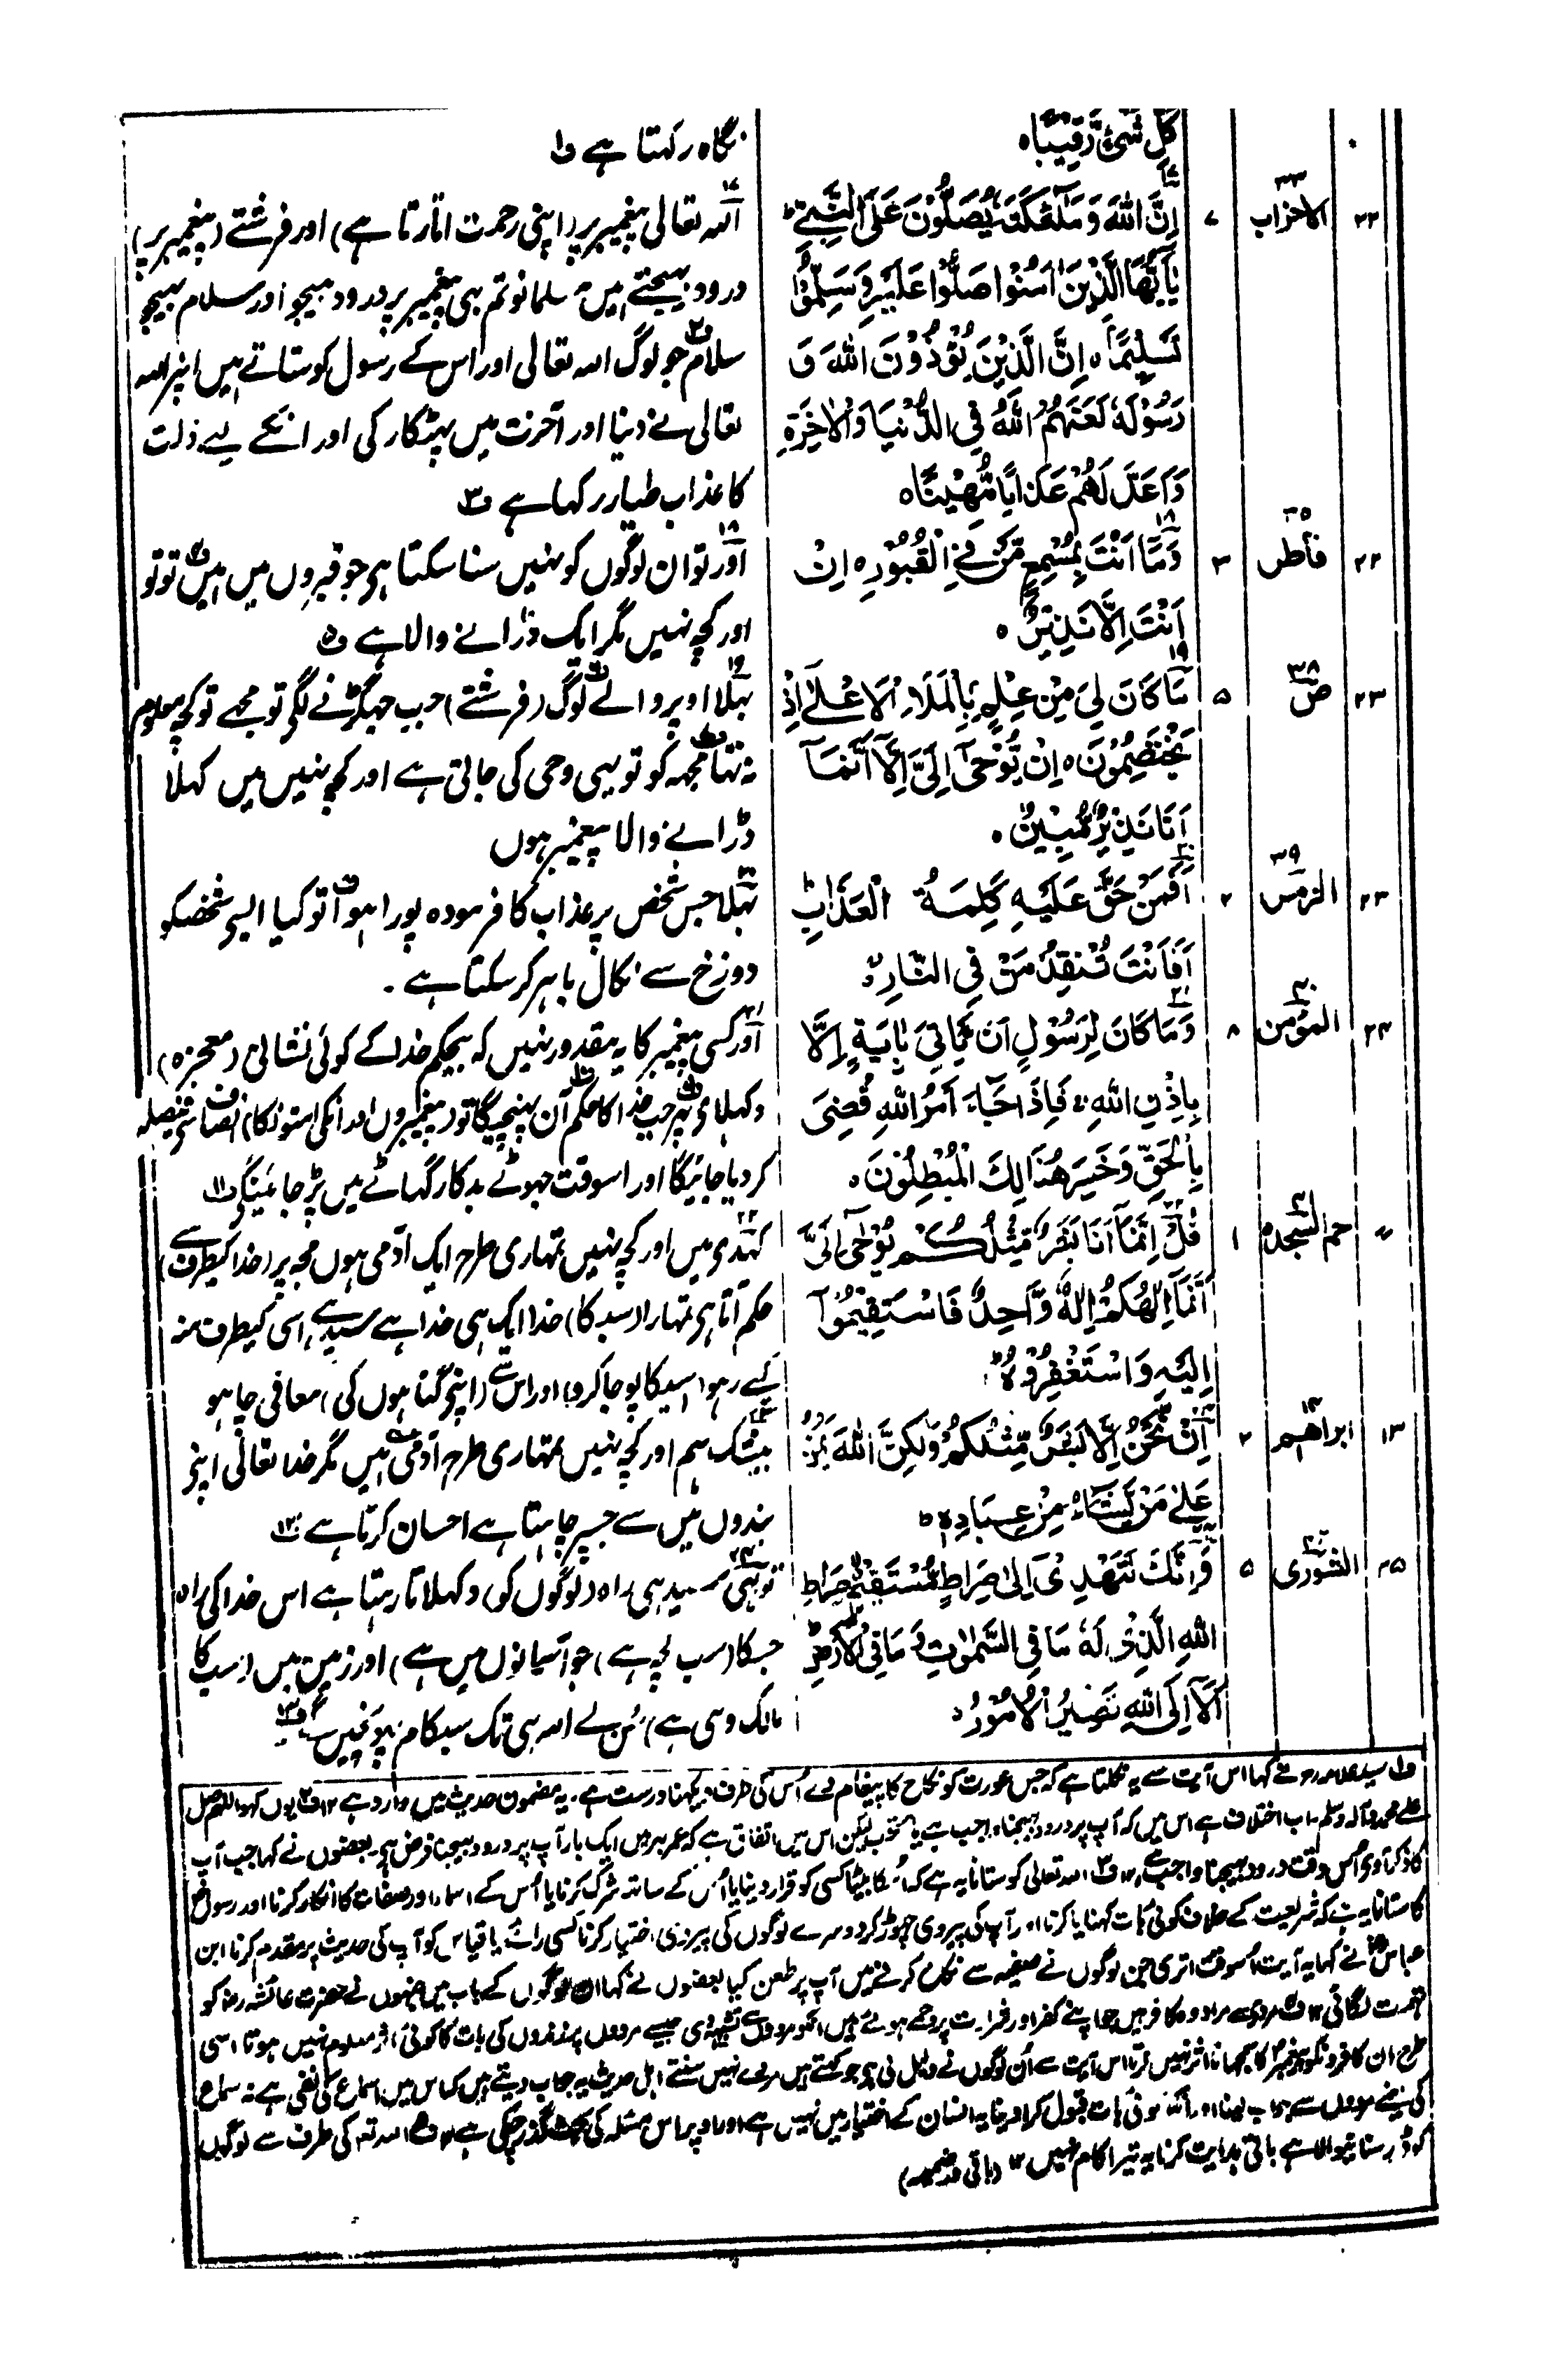 كُلِّ شَیْءٍ رَّقِیْبًا ہ
نگاہ رکہتا ہے ف۱
۲۲ الاحزاب ۳۳ ۷
۱۷ اِنَّ اللّٰهَ وَمَلٰٓئِكَتَهٗ یُصَلُّوْنَ عَلَی النَّبِیِّ ط
یٰٓاَیُّهَا الَّذِیْنَ اٰمَنُوْا صَلُّوْا عَلَیْهِ وَسَلِّمُوْا
تَسْلِیْمًا ہ اِنَّ الَّذِیْنَ یُؤْذُوْنَ اللّٰهَ وَ
رَسُوْلَهٗ لَعَنَهُمُ اللّٰهُ فِی الدُّنْیَا وَالْاٰخِرَةِ
وَاَعَدَّ لَهُمْ عَذَابًا مُّهِیْنًا ہ
۱۷ اللہ تعالی پیغمبر پر (اپنی رحمت اتارتا ہے) اور فرشتے (پیغمبر پر)
درود بہیجتے ہیں مسلمانو تم بہی پیغمبر پر درود بہیجو اور سلام بہیجو
سلام ف۲ جو لوگ اللہ تعالی اور اس کے رسول کو ستاتے ہیں انپر اللہ
تعالی نے دنیا اور آخرت میں پہٹکار کی اور انکے لیے ذلت
کا عذاب طیار رکہا ہے ف۳
۲۲ فاطر ۳۵ ۳
۱۸ وَمَآ اَنْتَ بِمُسْمِعٍ مَّنْ فِی الْقُبُوْرِ ہ اِنْ
اَنْتَ اِلَّا نَذِیْرٌ ہ
۱۸ اور تو ان لوگوں کو نہیں سنا سکتا ہی جو قبروں میں ہیں ف۴ تو تو
اور کچہ نہیں مگر ایک ڈرانے والا ہے ف۵
۲۳ صٓ ۳۸ ۵
۱۹ مَا كَانَ لِیَ مِنْ عِلْمٍ بِالْمَلَاِ الْاَعْلٰٓی اِذْ
یَخْتَصِمُوْنَ ہ اِنْ یُّوْحٰٓی اِلَیَّ اِلَّآ اَنَّمَآ
اَنَا نَذِیْرٌ مُّبِیْنٌ ہ
۱۹ بہلا اوپر والے لوگ (فرشتے) جب جہگڑنے لگی تو مجہے تو کچہ معلوم
نہ تہا مجہہ کو تو یہی وحی کی جاتی ہے اور کچہ نہیں میں کہلا
ڈرانے والا پیغمبر ہوں
۲۳ الزمر ۳۹ ۲
۲۰ اَفَمَنْ حَقَّ عَلَیْهِ كَلِمَةُ الْعَذَابِ ط
اَفَاَنْتَ تُنْقِذُ مَنْ فِی النَّارِ
۲۰ بہلا جس شخص پر عذاب کا فرمودہ پورا ہوا تو کیا ایسی شخصکو
دوزخ سے نکال باہر کر سکتا ہے ۔
۲۴ المؤمن ۴۰ ۸
۲۱ وَمَا كَانَ لِرَسُوْلٍ اَنْ یَّاْتِیَ بِاٰیَةٍ اِلَّا
بِاِذْنِ اللّٰهِ ج فَاِذَا جَآءَ اَمْرُ اللّٰهِ قُضِیَ
بِالْحَقِّ وَخَسِرَ هُنَالِكَ الْمُبْطِلُوْنَ ہ
۲۱ اور کسی پیغمبر کا یہ مقدور نہیں کہ بیحکم خدا کے کوئی نشانی (معجزہ)
دکہلای پہر جب خدا کا حکم آن پہنچیگا تو (پیغمبروں اور انکی امتونکا) انصاف سے فیصلہ
کردیا جائیگا اور اسوقت جہوٹے بدکار گہاٹے میں پڑ جائینگی ف۱۱
〃 حم السجدہ ۴۱ ۱
۲۲ قُلْ اِنَّمَآ اَنَا بَشَرٌ مِّثْلُكُمْ یُوْحٰٓی اِلَیَّ
اَنَّمَآ اِلٰهُكُمْ اِلٰهٌ وَّاحِدٌ فَاسْتَقِیْمُوْٓا
اِلَیْهِ وَاسْتَغْفِرُوْهُ ط
۲۲ کہدی میں اور کچہ نہیں تمہاری طرح ایک آدمی ہوں مجہ پر (خدا کیطرف سے)
حکم آتا ہی تمہارا (سب کا) خدا ایک ہی خدا ہے سیدہے اسی کیطرف منہ
کیے رہو (اسیکا پوجا کرو) اور اس سے (اپنی گناہوں کی) معافی چاہو
۱۳ ابراھیم ۱۴ ۲
۲۳ اِنْ نَّحْنُ اِلَّا بَشَرٌ مِّثْلُكُمْ وَلٰكِنَّ اللّٰهَ یَمُنُّ
عَلٰی مَنْ یَّشَآءُ مِنْ عِبَادِهٖ ط
۲۳ بیشک ہم اور کچہ نہیں تمہاری طرح آدمی ہیں مگر خدا تعالی اپنے
بندوں میں سے جسپر چاہتا ہے احسان کرتا ہے ف۱۲
۲۵ الشوریٰ ۴۲ ۵
۲۴ وَاِنَّكَ لَتَهْدِیْٓ اِلٰی صِرَاطٍ مُّسْتَقِیْمٍ صِرَاطِ
اللّٰهِ الَّذِیْ لَهٗ مَا فِی السَّمٰوٰتِ وَمَا فِی الْاَرْضِ ط
اَلَآ اِلَی اللّٰهِ تَصِیْرُ الْاُمُوْرُ
۲۴ تو بہی سیدہی راہ (لوگوں کو) دکہلاتا رہتا ہے اس خدا کی راہ
جسکا (سب کچہ ہے) جو آسمانوں میں ہے) اور زمین میں (سب کا
مالک وہی ہے) سُن لے اللہ ہی تک سبکام پہونچیں گے ف۱۳
ف۱ سید علامہ رح نے کہا اس آیت سے یہ نکلتا ہے کہ جس عورت کو نکاح کا پیغام دے اُس کی طرف دیکہنا درست ہے ۔ یہ مضمون حدیث میں وارد ہے ۱۲ ف۲ یوں کہو اللهم صل
علے محمد وآلہ وسلم ۔ اب اختلاف ہے اس میں کہ آپ پر درود بہیجنا واجب ہے یا مستحب لیکن اس میں اتفاق ہے کہ عمر بہر میں ایک بار آپ پر درود بہیجنا فرض ہی بعضوں نے کہا جب آپ
کا ذکر آوی اُس وقت درود بہیجنا واجب ہے ۱۲ ف۳ اللہ تعالی کو ستانا یہ ہے کہ اُسکا بیٹا کسی کو قرار دینا یا اُس کے ساتہ شرک کرنا یا اُس کے اسماء اور صفات کا انکار کرنا اور رسول
کا ستانا یہ ہے کہ شریعت کے خلاف کوئی بات کہنا یا کرنا اور آپ کی پیروی چہوڑ کر دوسرے لوگوں کی پیروی اختیار کرنا کسی رائے یا قیاس کو آپ کی حدیث پر مقدم کرنا ابن
عباس رض نے کہا یہ آیت اُسوقت اتری جن لوگوں نے صفیہ سے نکاح کرنے میں آپ پر طعن کیا بعضوں نے کہا ان لوگوں کے باب میں جنہوں نے حضرت عائشہ رض کو
تہمت لگائی ۱۲ ف۴ مردی سے مراد وہ کافر ہیں جو اپنے کفر اور شرارت پر جمے ہوئے ہیں انکو مردوں سے تشبیہ دی جیسے مردوں پر زندوں کی بات کا کوئی اثر معلوم نہیں ہوتا اسی
طرح ان کافرونکو پیغمبر کا سمجہانا اثر نہیں کرتا اس آیت سے اُن لوگوں نے دلیل لی ہی جو کہتے ہیں مردے نہیں سنتے اہل حدیث یہ جواب دیتے ہیں کہ اس میں اسماع کی نفی ہے نہ سماع
کی یعنے مردوں سے جواب لینا اور اُنکو کوئی بات قبول کرا دینا یہ انسان کے اختیار میں نہیں ہے اور اوپر اس مسئلہ کی بحث گذر چکی ہے ۱۲ ف۵ اللہ تعہ کی طرف سے لوگوں
کو ڈر سنانیوالا ہے باقی ہدایت کرنا یہ تیرا کام نہیں ۱۲ (باقی در ضمیمہ)